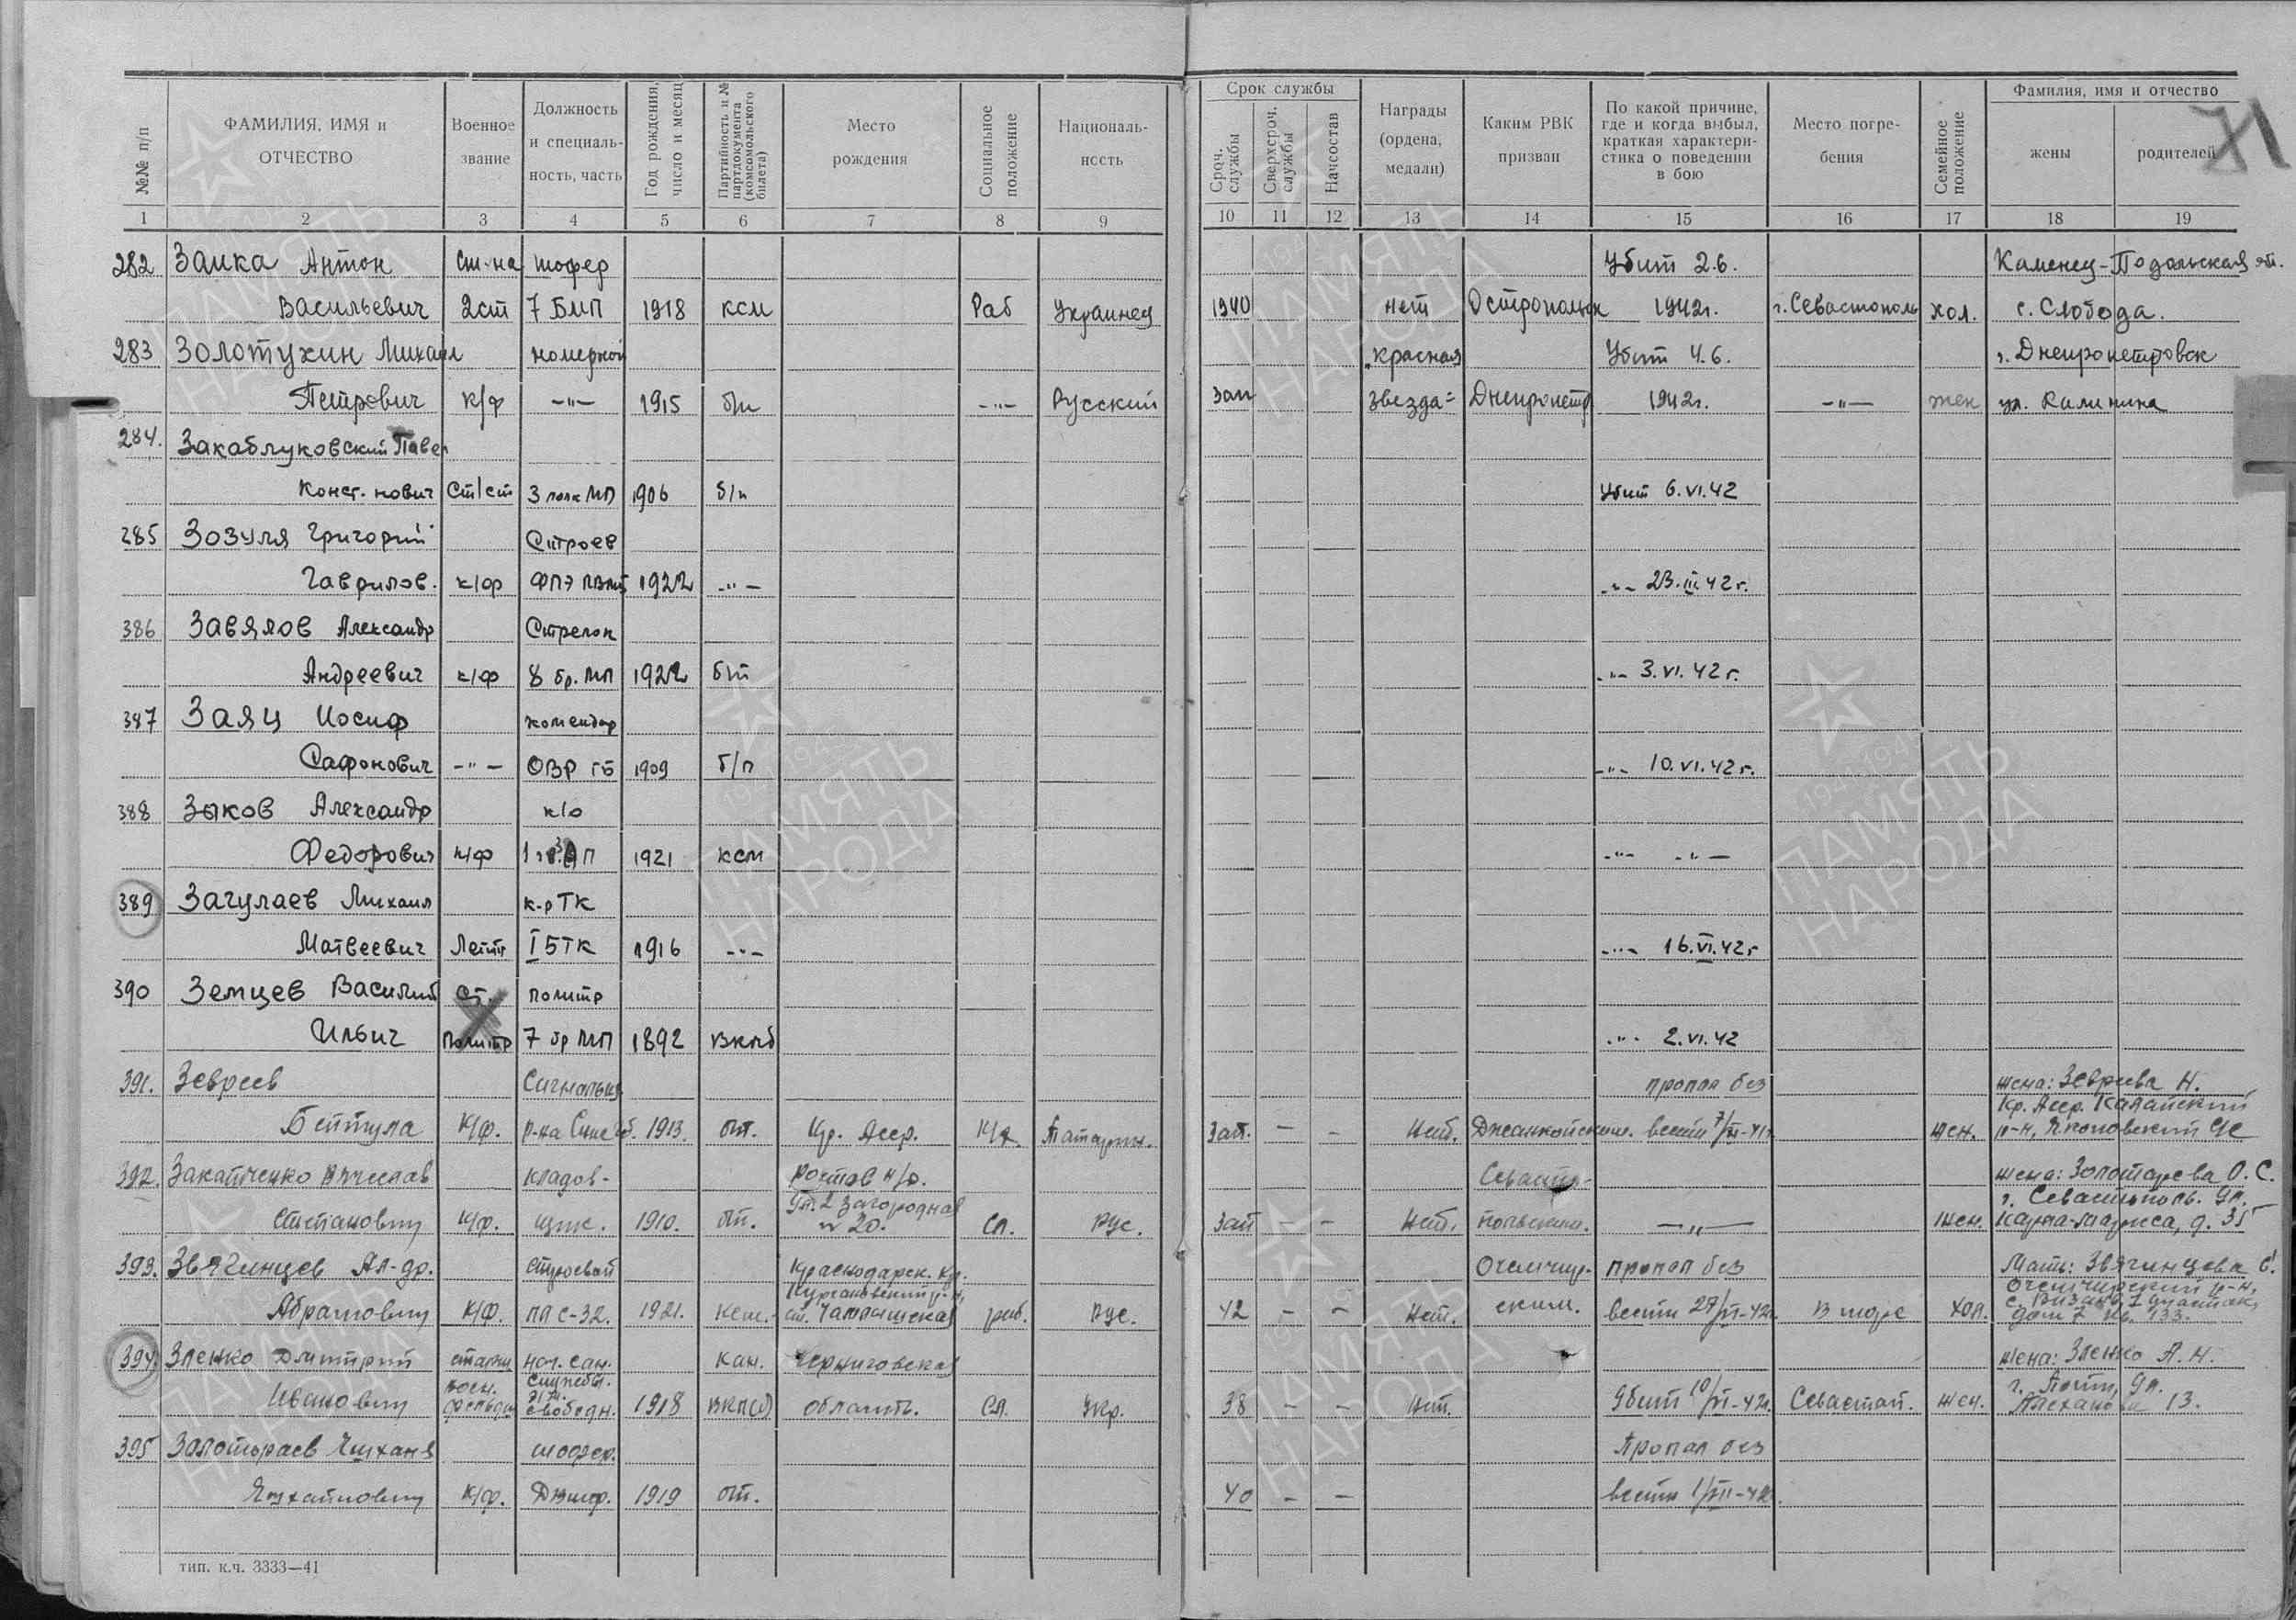 71
№№ п/п | ФАМИЛИЯ, ИМЯ и ОТЧЕСТВО | Военное звание | Должность и специальность, часть | Год рождения, число и месяц | Партийность и № партдокумента (комсомольского билета) | Место рождения | Социальное положение | Националь-ность | Срок службы | Сроч. службы | Сверхсроч. службы | Начсостав | Награды (ордена, медали) | Каким РВК призван | По какой причине, где и когда выбыл, краткая характери-стика о поведении в бою | Место погре-бения | Семейное положение | Фамилия, имя и отчество | жены | родителей
1 2 3 4 5 6 7 8 9 10 11 12 13 14 15 16 17 18 19
282 Заика Антон Ст-на шофер Убит 2.6. Каменец-Подольская
Васильевич 2ст 7 БМП 1918 ксм Раб Украинец 1940 нет Острополь 1942г. г.Севастополь хол. с. Слобода.
283 Золотухин Михаил номерной Красная Убит 4.6. г. Днепропетровск
Петрович к/ф -"- 1915 б/п -"- Русский Зап звезда Днепропетр 1942г. -"- жен ул. Калинина
284. Закаблуковский Павел
Конст.нович Ст/ст 3 полк МП 1906 б/п Убит 6.VI.42
285 Зозуля Григорий Строев
Гаврилов. к/ф 1922 -"- -"- 23.III.42г.
386 Завялов Александр Стрелок
Андреевич к/ф 8 бр. МП 1922 б/п -"- 3.VI.42г.
387 Заяц Иосиф комендор
Сафонович -"- ОВР ГБ 1909 б/п -"- 10.VI.42г.
388 Зыков Александр к/о
Федорович к/ф 1921 ксм -"- -"-
389 Загулаев Михаил к-р ТК
Матвеевич Лейт I БТК 1916 -"- -"- 16.VI.42г
390 Земцев Василий Ст. политр
Ильич Политр 7 бр МП 1892 ВКПб -"- 2.VI.42
391. Зевреев Сигнальщ пропал без жена: Зевреева Н.
Кр. Асср. Калайский
Бейтула К/ф. 1913. бп. Кр. Асср. Татарин. Зап. - - Нет. Джанкойским. вести 7/XI-41г жен. р-н,
392. Закатченко Вячеслав кладов- Ростов н/д. Севасто- жена: Золотарева О.С.
ул. 2 Загородная г. Севастополь. ул.
Степанович К/ф. щик. 1910. бп. № 20. Сл. Рус. Зап - - Нет. польским. -"- жен. Карла-Маркса, д. 35
393. Звягинцев Ал-др. строевой Краснодарск. кр. Очемчир- пропал без Мать: Звягинцева
Очемчирский р-н,
Абрамович К/ф. ПЛ С-32. 1921. Ксм. раб. Рус. 42 - - Нет. ским. вести 27/VI-42г. В море хол. дом 7 кв. 133.
394. Зленко Дмитрий старш нач. сан. Кан. Черниговская жена: Зленко А.Н.
воен. службы г. Поти, ул.
Иванович фельдш 1918 ВКП(б) область. Сл. Укр. 38 - - Нет. Убит 10/VI-42г. Севастоп. жен. 13.
395 шофер. Пропал без
К/ф. 1919 бп. 40 - - вести 1/VII-42
тип. к.ч. 3333—41
ПАМЯТЬ НАРОДА
1941-1945